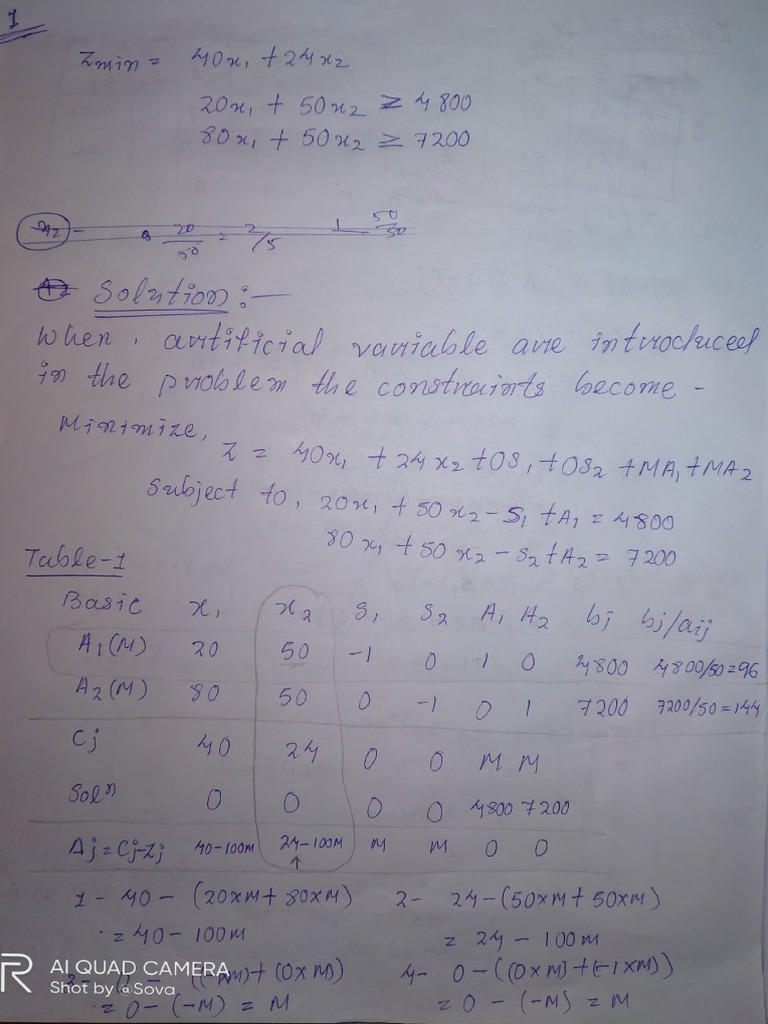 1
Zmin = 40x₁ + 24x₂
20x₁ + 50x₂ ≥ 4800
80x₁ + 50x₂ ≥ 7200
20/50 = 2/5 1 50/50
Solution :—
When, artificial variable are introduced
in the problem the constraints become -
Minimize,
Z = 40x₁ + 24x₂ + 0S₁ + 0S₂ + MA₁ + MA₂
Subject to, 20x₁ + 50x₂ - S₁ + A₁ = 4800
80x₁ + 50x₂ - S₂ + A₂ = 7200
Table-1
Basic x₁ x₂ S₁ S₂ A₁ A₂ bj bj/aij
A₁(M) 20 50 -1 0 1 0 4800 4800/50=96
A₂(M) 80 50 0 -1 0 1 7200 7200/50=144
Cj 40 24 0 0 M M
Solⁿ 0 0 0 0 4800 7200
Δj = Cj-Zj 40-100M 24-100M M M 0 0
↑
1- 40 - (20×M + 80×M) 2- 24-(50×M + 50×M)
= 40 - 100M = 24 - 100M
(0×M) 4- 0-((0×M)+(-1×M))
= 0-(-M) = M = 0 - (-M) = M
AI QUAD CAMERA
Shot by @Sova